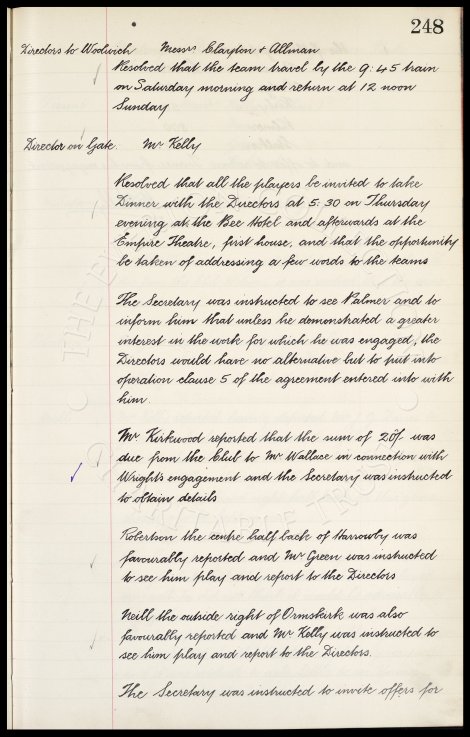 248
Directors to Woolwich Messrs Clayton & Allman
Resolved that the team travel by the 9:45 train
on Saturday morning and return at 12 noon
Sunday
Director on Gate. Mr Kelly
Resolved that all the players be invited to take
Dinner with the Directors at 5:30 on Thursday
evening at the Bee Hotel and afterwards at the
Empire Theatre, first house, and that the opportunity
be taken of addressing a few words to the teams
The Secretary was instructed to see Palmer and to
inform him that unless he demonstrated a greater
interest in the work for which he was engaged, the
Directors would have no alternative but to put into
operation clause 5 of the agreement entered into with
him.
Mr Kirkwood reported that the sum of 20/- was
due from the Club to Mr Wallace in connection with
Wright's engagement and the Secretary was instructed
to obtain details
Robertson the centre half back of Harrowby was
favourably reported and Mr Green was instructed
to see him play and report to the Directors
Neill the outside right of Ormskirk was also
favourably reported and Mr Kelly was instructed to
see him play and report to the Directors.
The Secretary was instructed to invite offers for